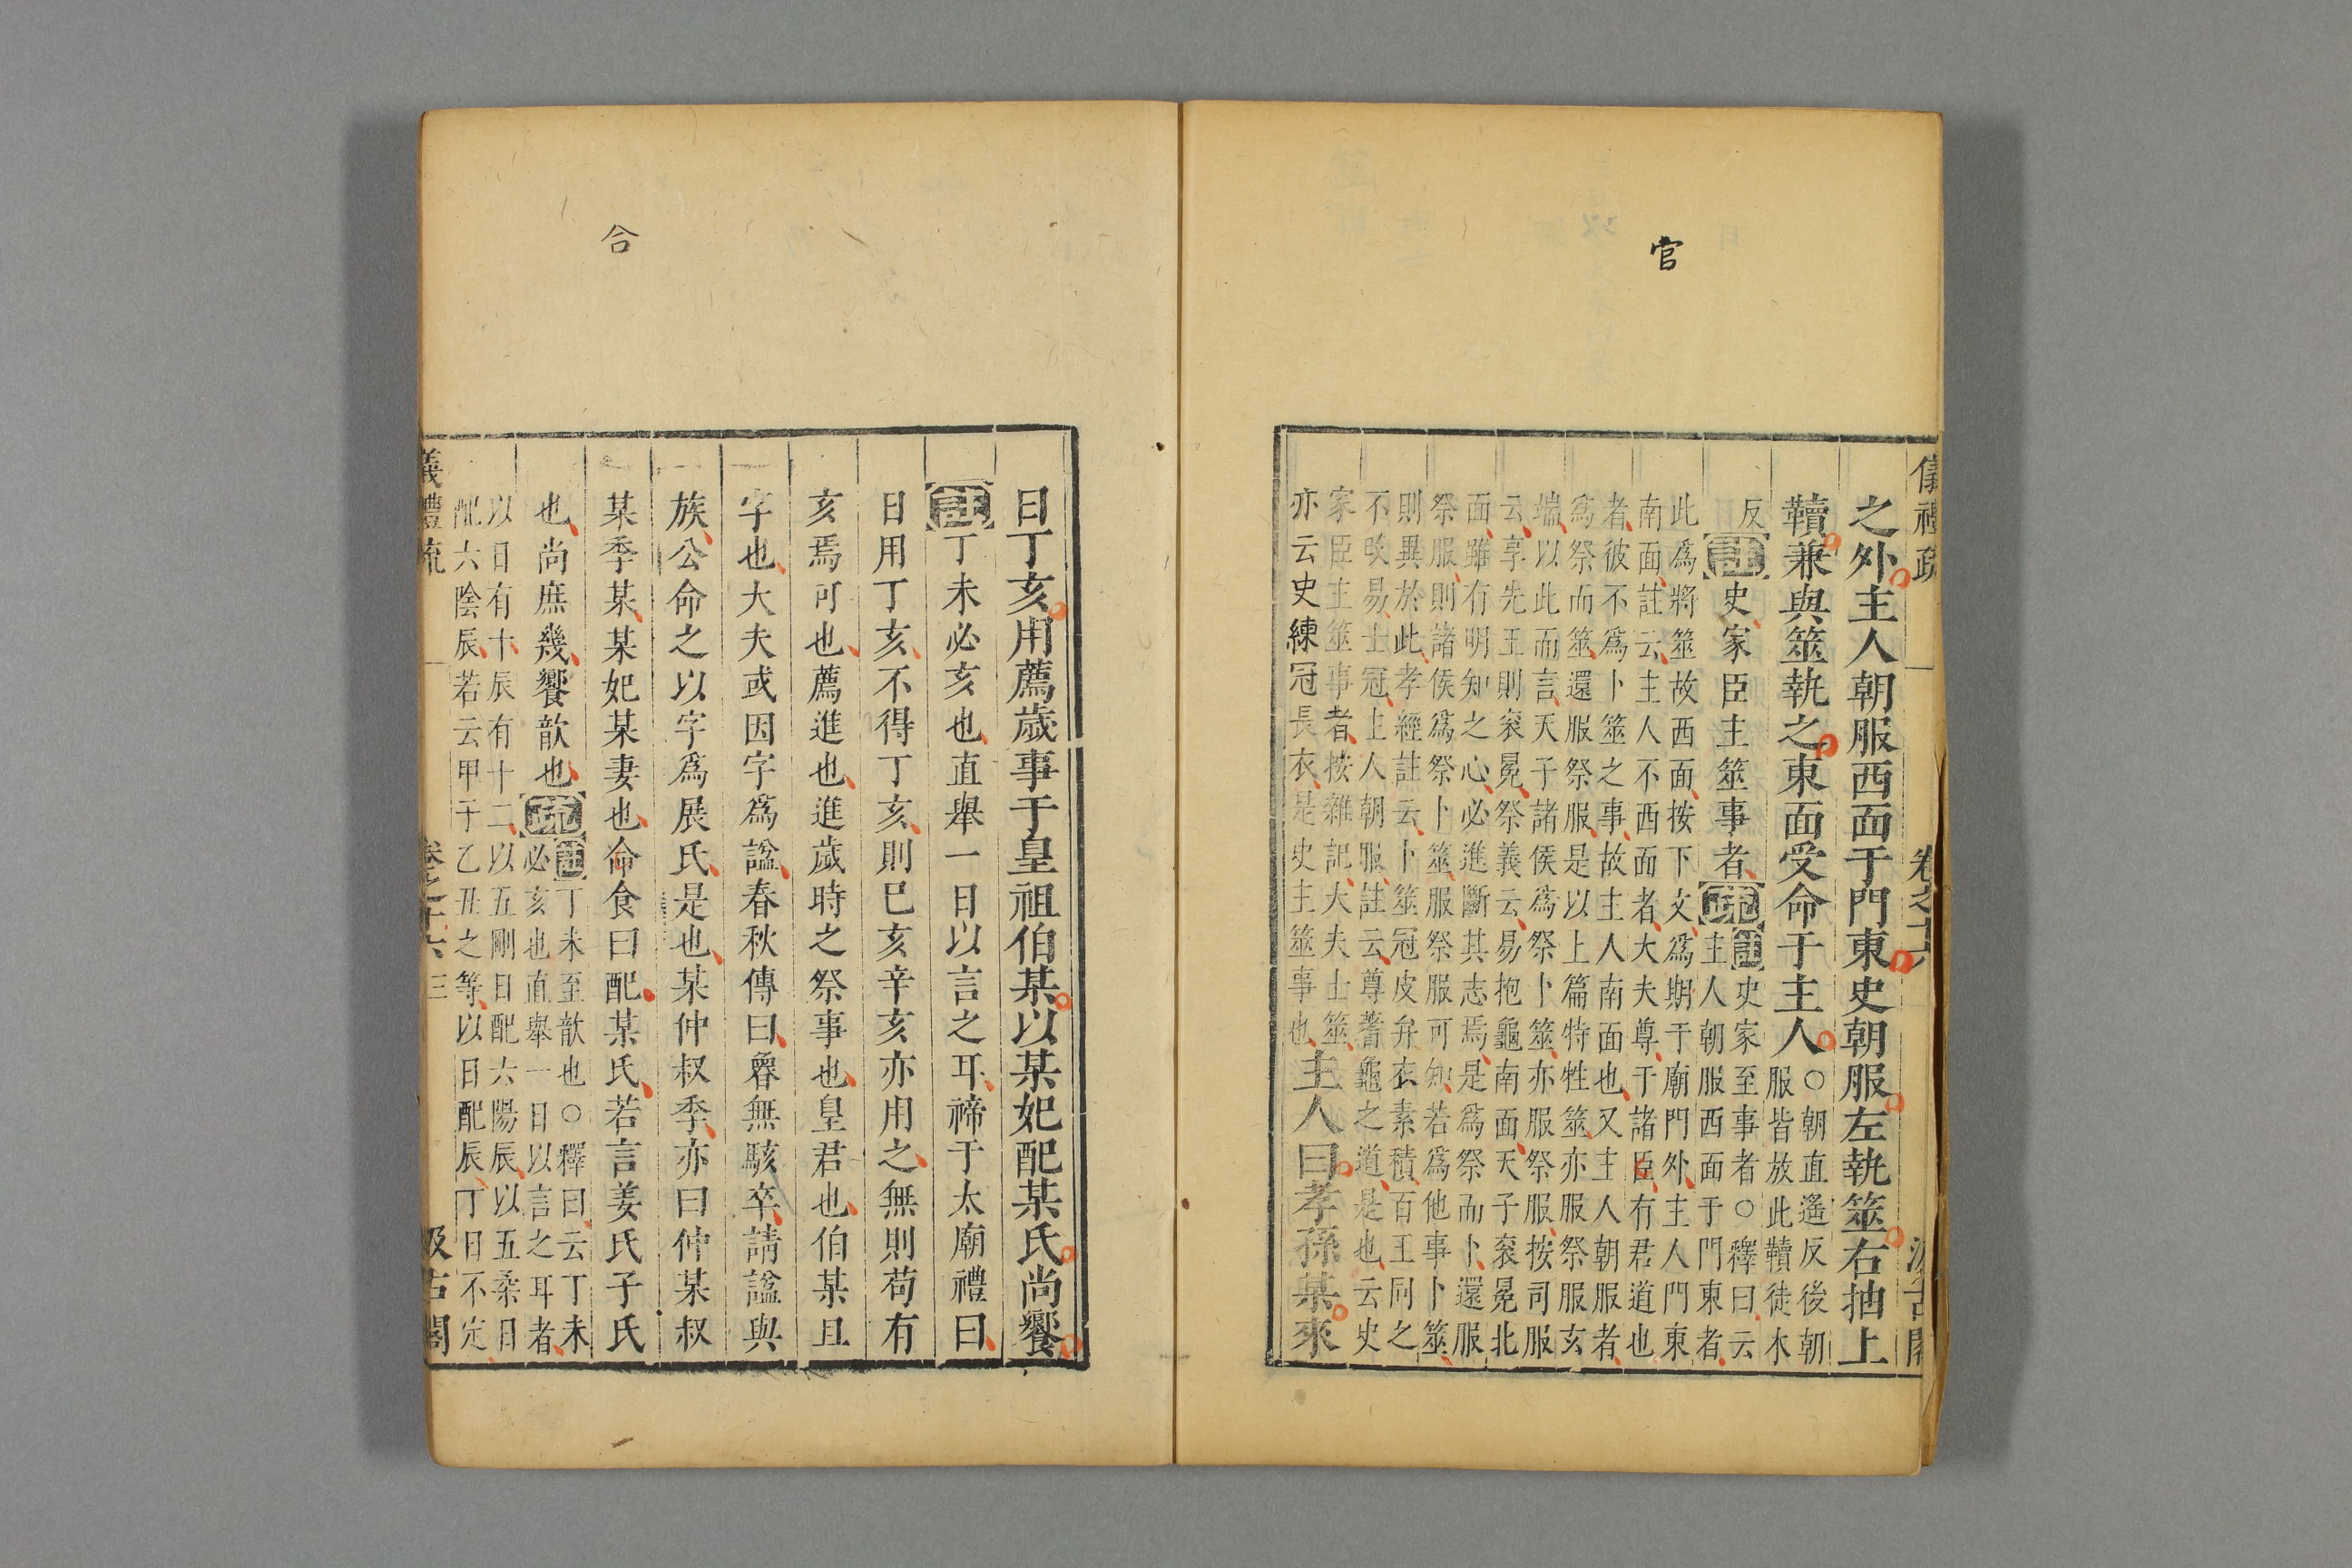 官
儀禮疏 卷之十六 汲古閣
之外主人朝服西面于門東史朝服左執筮右抽上
韇兼與筮執之東面受命于主人○朝直遙反後朝
服皆放此韇徒木
反註史家臣主筮事者疏註史家至事者○釋曰云
主人朝服西面于門東者
此爲將筮故西面按下文爲期于廟門外主人門東
南面註云主人不西面者大夫尊于諸臣有君道也
者彼不爲卜筮之事故主人南面也又主人朝服者
爲祭而筮還服祭服是以上篇特牲筮亦服祭服玄
端以此而言天子諸侯爲祭卜筮亦服祭服按司服
云享先王則衮冕祭義云易抱龜南面天子衮冕北
面雖有明知之心必進斷其志焉是爲祭而卜還服
祭服則諸侯爲祭卜筮服祭服可知若爲他事卜筮
則異於此孝經註云卜筮冠皮弁衣素積百王同之
不敢易士冠主人朝服註云尊蓍龜之道是也云史
家臣主筮事者按雜記大夫士筮
亦云史練冠長衣是史主筮事也主人曰孝孫某來
合
曰丁亥用薦歲事于皇祖伯某以某妃配某氏尚饗
註丁未必亥也直舉一日以言之耳禘于太廟禮曰
日用丁亥不得丁亥則己亥辛亥亦用之無則苟有
亥焉可也薦進也進歲時之祭事也皇君也伯某且
字也大夫或因字爲諡春秋傳曰魯無駭卒請諡與
族公命之以字爲展氏是也某仲叔季亦曰仲某叔
某季某某妃某妻也合食曰配某氏若言姜氏子氏
也尚庶幾饗歆也疏註丁未至歆也○釋曰云丁未
必亥也直舉一日以言之耳者
以日有十辰有十二以五剛日配六陽辰以五柔日
配六陰辰若云甲子乙丑之等以日配辰丁日不定
儀禮疏 卷之十六 三 汲古閣